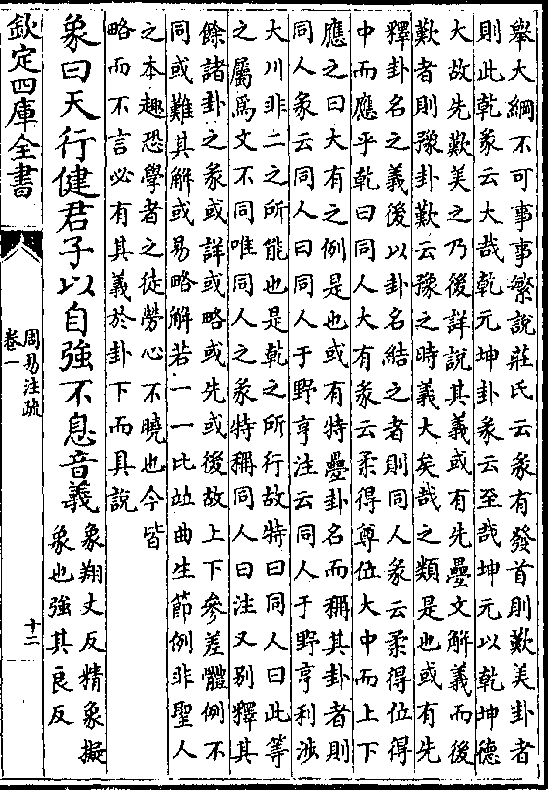 舉大綱不可事事繁說莊氏云彖有發首則歎美卦者
則此乾彖云大哉乾元坤卦彖云至哉坤元以乾坤德
大故先歎美之乃後詳說其義或有先疊文解義而後
歎者則豫卦歎云豫之時義大矣哉之類是也或有先
釋卦名之義後以卦名結之者則同人彖云柔得位得
中而應乎乾曰同人大有彖云柔得尊位大中而上下
應之曰大有之例是也或有特疊卦名而稱其卦者則
同人彖云同人曰同人于野亨注云同人于野亨利涉
大川非二之所能也是乾之所行故特曰同人曰此等
之屬為文不同唯同人之彖特稱同人曰注又别釋其
餘諸卦之彖或詳或略或先或後故上下參差體例不
同或難其解或易略解若一一比並曲生節例非聖人
之本趣恐學者之徒勞心不曉也今皆
略而不言必有其義於卦下而具說
象曰天行健君子以自強不息音義
象翔丈反精象擬
象也強其良反
欽定四庫全書
周易注疏
卷一
十二